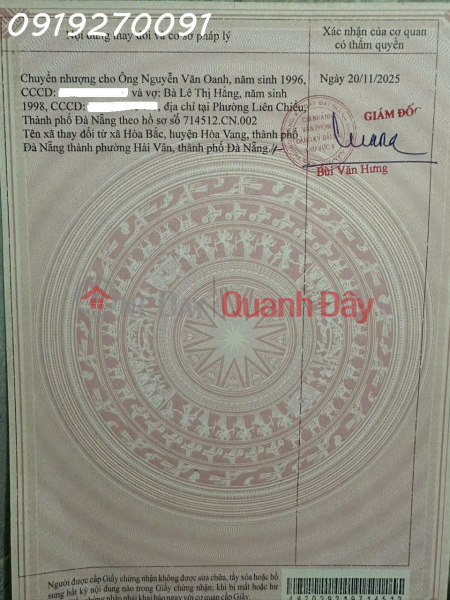 0919270091
Nội dung thay đổi và cơ sở pháp lý
Xác nhận của cơ quan
có thẩm quyền
Chuyển nhượng cho Ông Nguyễn Văn Oanh, năm sinh 1996,
CCCD: và vợ: Bà Lê Thị Hằng, năm sinh
1998, CCCD: , địa chỉ tại Phường Liên Chiểu,
Thành phố Đà Nẵng theo hồ sơ số 714512.CN.002
Tên xã thay đổi từ xã Hòa Bắc, huyện Hòa Vang, thành phố
Đà Nẵng thành phường Hải Vân, thành phố Đà Nẵng./-
Ngày 20/11/2025
GIÁM ĐỐC
CHI NHÁNH
VĂN PHÒNG
ĐĂNG KÝ ĐẤT
Bùi Văn Hưng
Quanh Đây
Người được cấp Giấy chứng nhận không được sửa chữa, tẩy xóa hoặc bổ
sung bất kỳ nội dung nào trong Giấy chứng nhận; khi bị mất hoặc hư
hỏng Giấy chứng nhận phải khai báo ngay với cơ quan cấp Giấy.